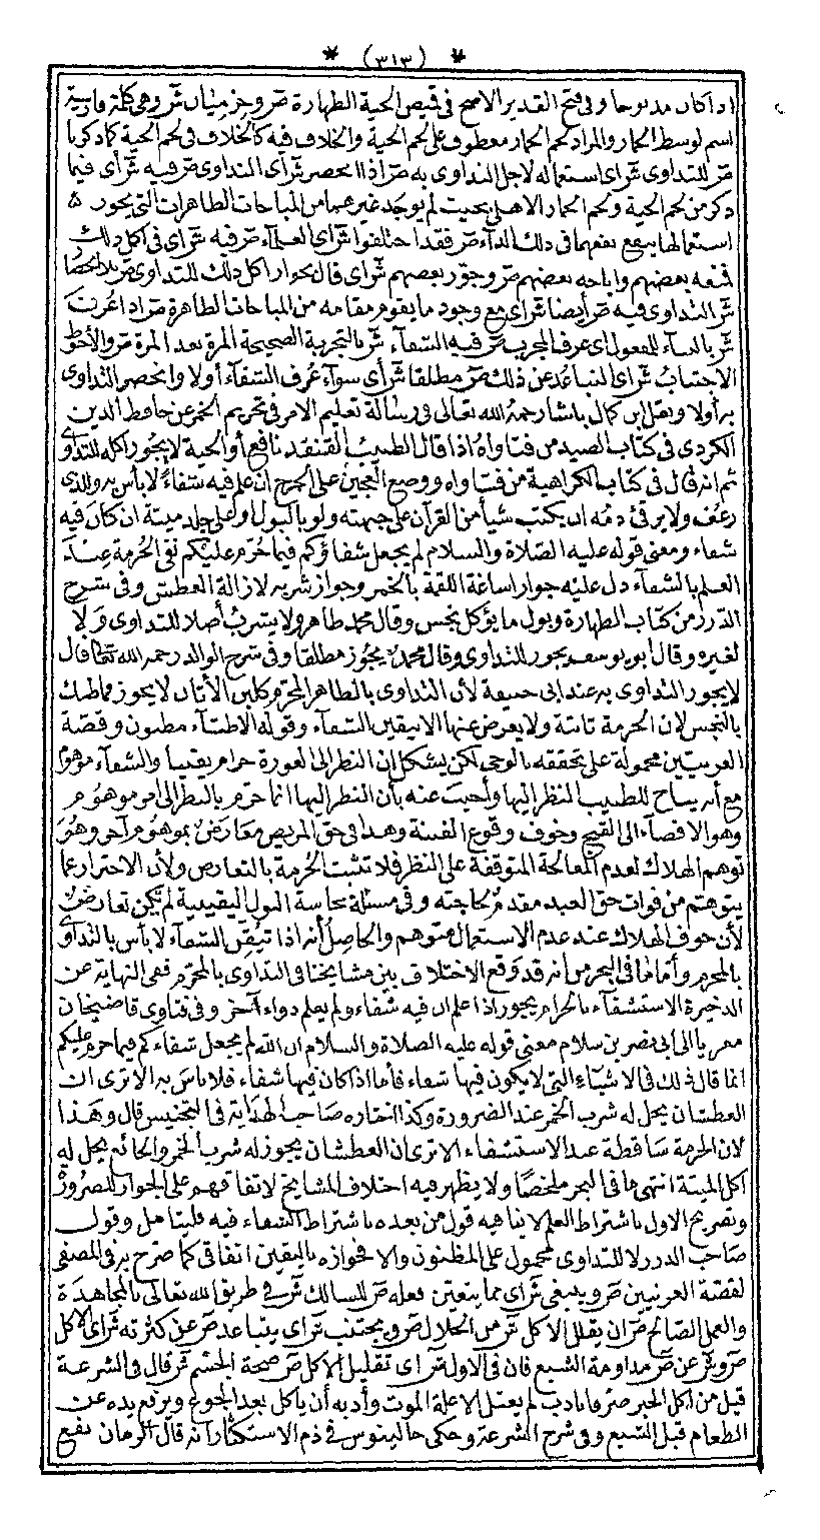 * (٣١٣) *
اذا كان مذبوحا وفى فتح القدير الاصح فى قميص الحية الطهارة صر وخز ميان شر وهى كلمة فارسية
اسم لوسط الحمار والمراد لحم الحمار معطوف على لحم الحية والخلاف فيه كالخلاف فى لحم الحية كما ذكرنا
صر للتداوى شر اى استعماله لاجل التداوى به صر اذا انحصر شر أى التداوى صر فيه شر أى فيما
ذكر من لحم الحية ولحم الحمار الاهلى بحيث لم يوجد غيرهما من المباحات الطاهرات التى يجوز
استعمالها ينفع نفعهما فى ذلك الداء صر فقد اختلفوا شر اى العلماء صر فيه شر اى فى اكل ذلك
فمنعه بعضهم واباحه بعضهم صر وجوز بعضهم شر اى قال بجواز اكل ذلك للتداوى صر بلا انحصار
شر التداوى فيه صر أيضا شر اى مع وجود ما يقوم مقامه من المباحات الطاهرة صر اذا عُرف
شر بالبناء للمفعول اى عرف المجرب صر فيه الشفاء شر بالتجربة الصحيحة المرة بعد المرة صر والأحوط
الاجتناب شر اى التباعُد عن ذلك صر مطلقا شر أى سواء عُرف الشفاء أولا وانحصر التداوى
به أولا ونقل ابن كمال باشا رحمهُ الله تعالى فى رسالة تعليم الامر فى تحريم الخمر عن حافظ الدين
الكردى فى كتاب الصيد من فتاواهُ اذا قال الطبيب القنفذ نافع أو الحية لا يجُوز اكله للتداوى
ثم انه قال فى كتاب الكراهية من فتاواه ووضع العجين على الجرح ان علم فيه شفاءٌ لا بأس به والذى
رعُف ولا يرقئ دمُه ان يكتب شيأ من القرآن على جبهته ولو بالبول او على جلد ميتة ان كان فيه
شفاء ومعنى قوله عليه الصّلاة والسلام لم يجعل شفاؤكم فيما حُرّم عليكم نفى الحُرمة عند
العلم بالشفاء دل عليه جواز اساغة اللقمة بالخمر وجواز شربه لازالة العطش وفى شرح
الدّرر من كتاب الطهارة وبول ما يؤكل نجس وقال محمد طاهر ولا يشربُ أصلا للتداوى ولا
لغيره وقال ابو يوسف يجوز للتداوى وقال محمد يجُوز مطلقا وفى شرح الوالد رحمه الله تعالى قال
لا يجوز التداوى به عند ابى حنيفة لأن التداوى بالطاهر المحرّم كلبن الأتان لا يجوز فما ظنك
بالنجس لان الحرمة ثابتة ولا يعرض عنها الا بيقين الشفاء وقوله الاطباء مظنون وقصّة
العرنيين محمولة على تحققه بالوحى لكن يشكل ان النظر الى العورة حرام يقينيا والشفاء موهوم
مع أنه يباح للطبيب النظر اليها واُجيبَ عنه بأن النظر اليها انما حرّم بالنظر الى امر موهُوم
وهو الافضاء الى القبيح وخوف وقوع الفتنة وهذا فى حق المريض معارَضٌ بموهُوم آخر وهُوَ
توهم الهلاك لعدم المعالجة المتوقفة على النظر فلا تثبت الحُرمة بالتعارض ولأن الاحتراز عما
يتوهم من فوات حق العبد مقدمٌ لحاجته وفى مسئلة نجاسة البول اليقينية لم يكن تعارضٌ
لأن خوف الهلاك عند عدم الاستعمال متوهم والحاصلُ أنه اذا تيُقن الشفاء لا بأس بالتداوى
بالمحرم وأما ما فى البحر من انه قد وَقع الاختلاف بين مشايخنا فى التداوى بالمحرّم ففى النهاية عن
الذخيرة الاستشفاء بالحرام يجوز اذا علم ان فيه شفاء ولم يعلم دواء آخر وفى فتاوى قاضيخان
معزيا الى ابى نصر بن سلام معنى قوله عليه الصلاة والسلام ان الله لم يجعل شفاءكم فيما حرم عليكم
انما قال ذلك فى الاشياء التى لا يكون فيها شفاء فأما اذا كان فيها شفاء فلا بأسَ به الا ترى ان
العطشان يحل له شرب الخمر عند الضرورة وكذا اختاره صاحب الهداية فى التجنيس قال وهذا
لان الحرمة ساقطة عند الاستشفاء الا ترى ان العطشان يجوز له شرب الخمر والجائع يحل له
اكل الميتة انتهى ما فى البحر ملخصًا ولا يظهر فيه اختلاف المشايخ لاتفاقهم على الجواز للضرورة
وتصريح الاول باشتراط العلم لا ينافيه قول من بعده باشتراط الشفاء فيه فليتأمل وقول
صاحب الدرر لا للتداوى محمول على المظنون والا فجوازه باليقين اتفاقى كما صرّح به فى المصفى
لقصّة العرنيين صر وينبغى شر اى مما يتعين فعله صر للسالك شر فى طريق الله تعالى بالمجاهدة
والعمل الصّالح صر ان يقلل الاكل شر من الحلال صر ويجتنب شر اى يتباعد صر عن كثرته شر اى الاكل
صر و شر عن صر مداومة الشبع فان فى الاول شر اى تقليل الاكل صر صحة الجسم شر قال فى الشرعة
قيل من اكل الخبز صرفا بادب لم يعتل الا علة الموت وأدبه أن يأكل بعد الجوع ويرفع يده عن
الطعام قبل الشبع وفى شرح الشرعة وحكى جالينوس فى ذم الاستكثار انه قال الرمان نفع